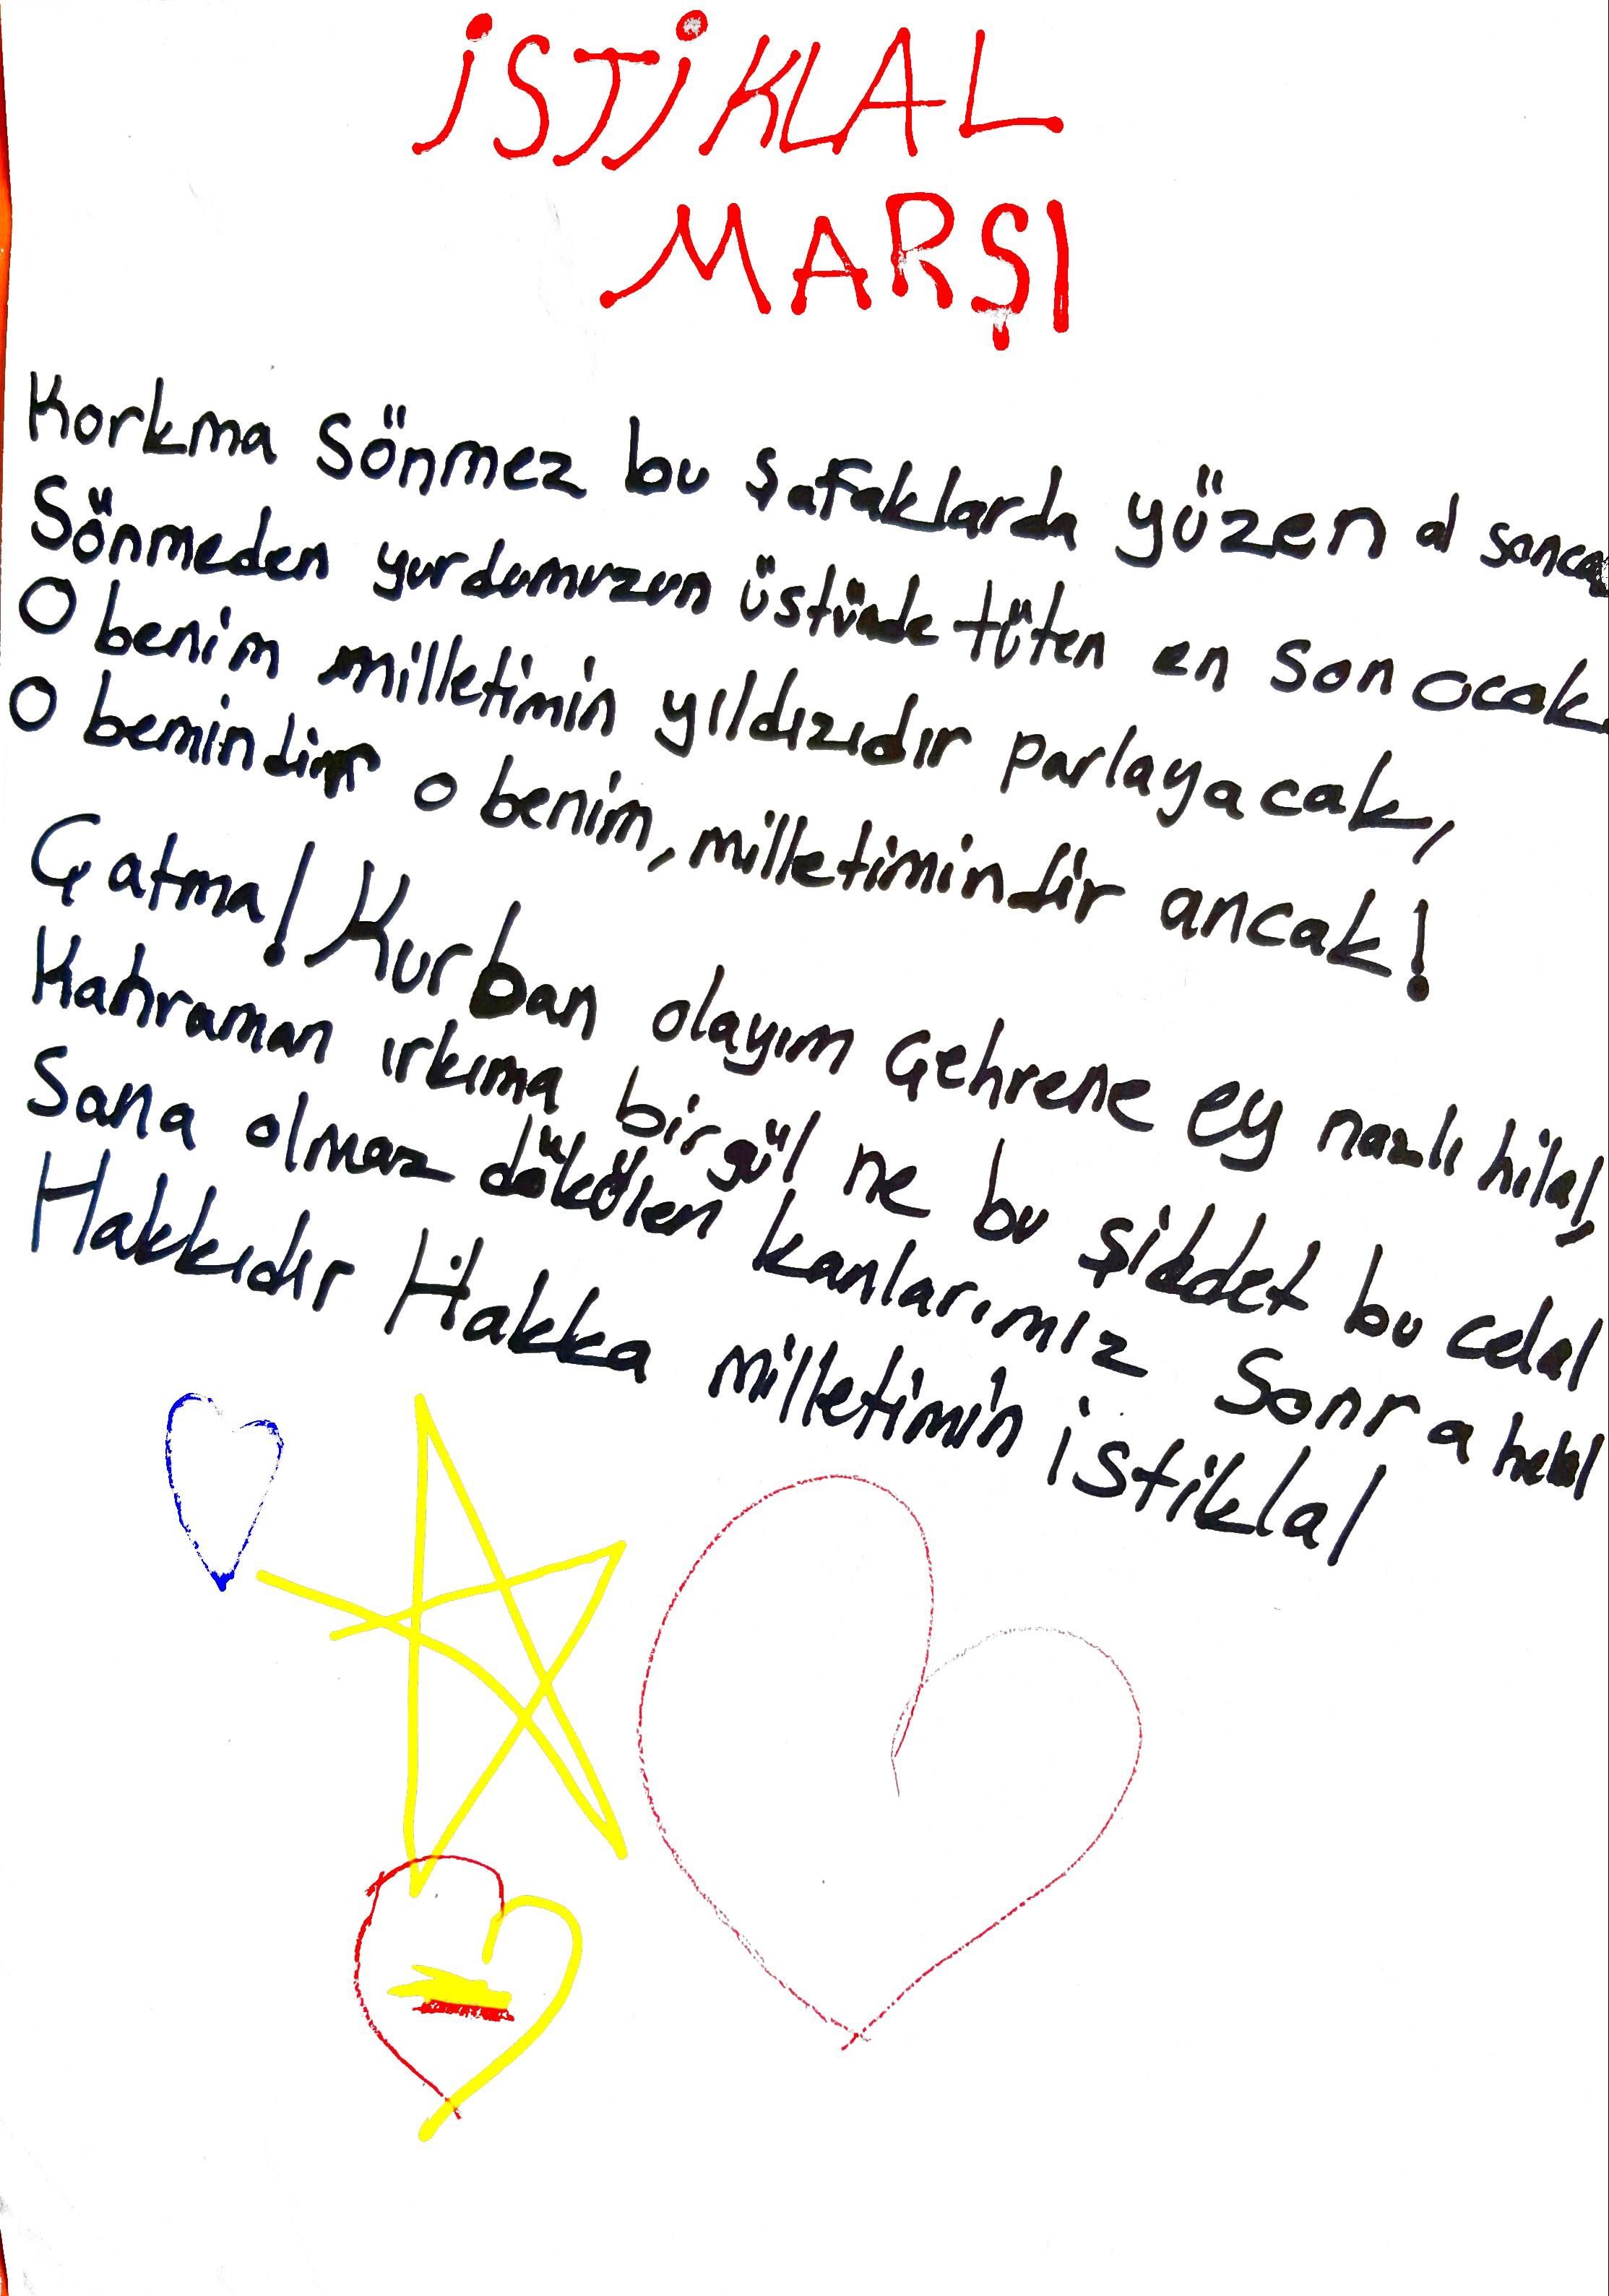 İSTİKLAL
MARŞI
Korkma Sönmez bu şafaklarda yüzen al sanca
Sönmeden yurdumuzun üstünde tüten en son ocak.
O benim milletimin yıldızıdır parlayacak,
O bemindir o benim, milletimindir ancak!
Çatma! Kurban olayım çehrene ey nazlı hilal,
Kahraman ırkıma bir gül ne bu şiddet bu celal
Sana olmaz dökülen kanlarımız Sonra helal
Hakkıdır Hakka milletimin istiklal